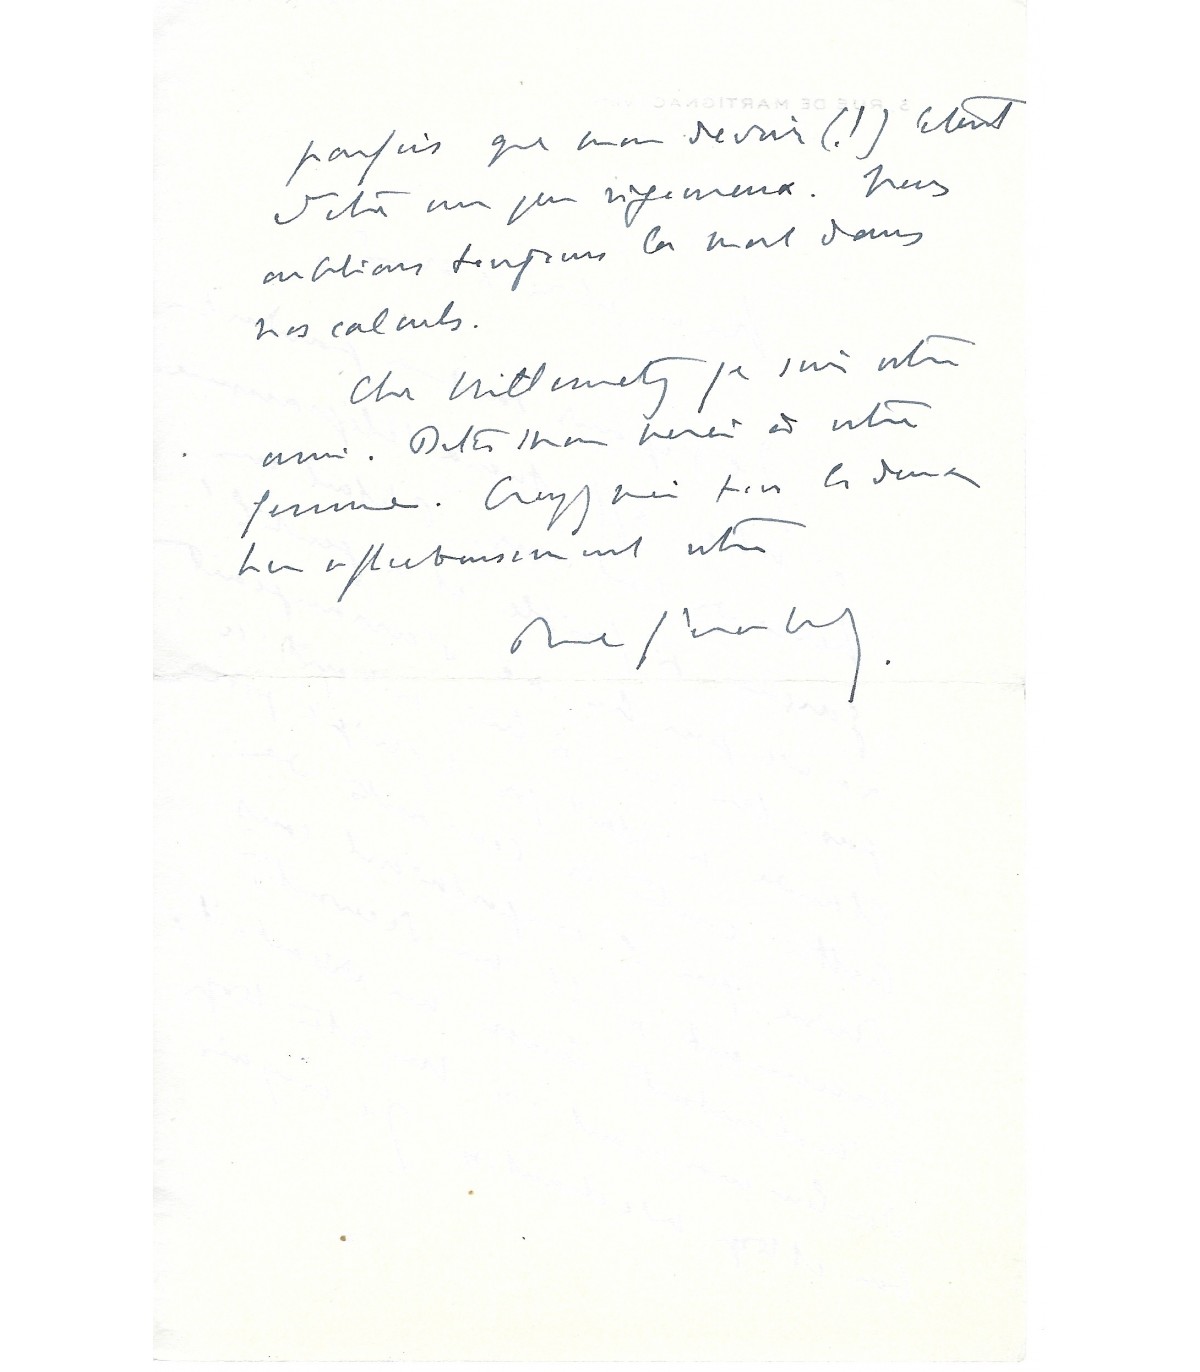 parfois que mon devoir (!) était
d'être un peu rigoureux. Nous
oublions toujours la mort dans
nos calculs.
Cher Willemetz je suis votre
ami. Dites mon merci à votre
femme. Croyez moi tous les deux
bien affectueusement votre